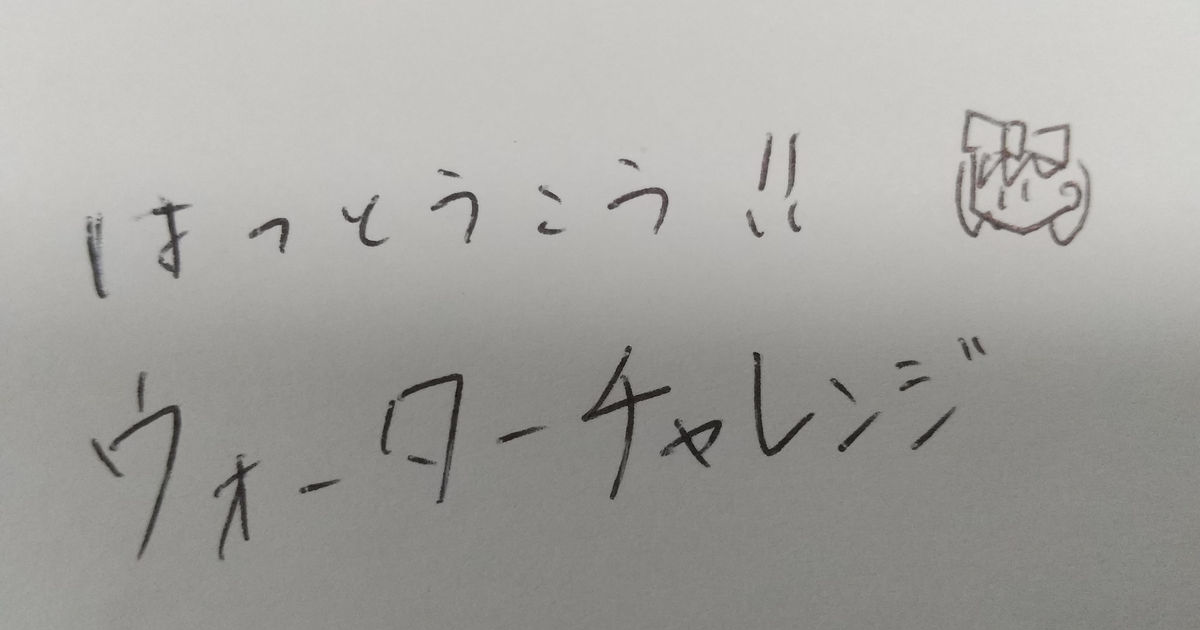 はっとうこう!!
ウォーターチャレンジ